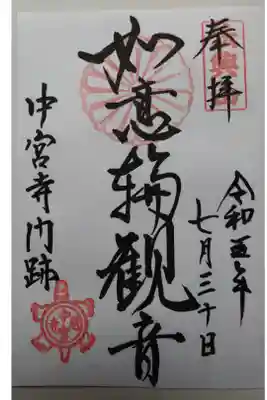 奉拝
令和五年
七月三十日
如意輪観音
中宮寺門跡